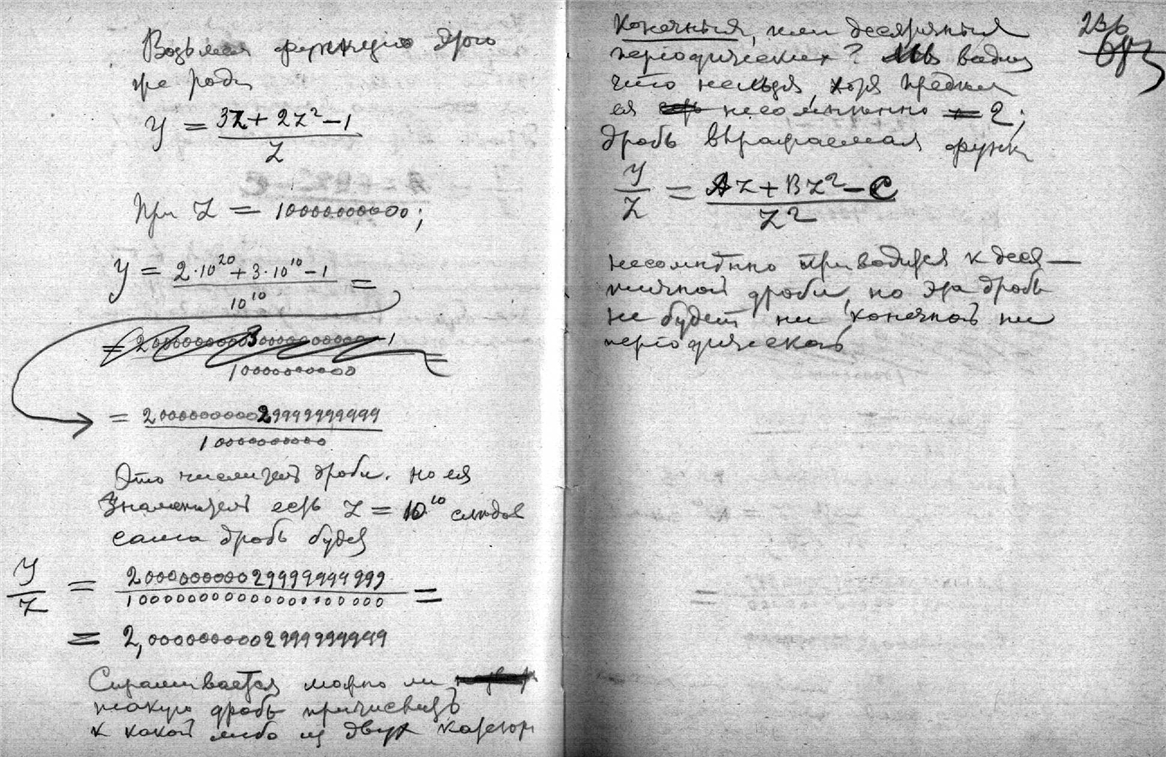 Возьмем функцию того
же рода
y = (3z + 2z² − 1) / z
При z = 10000000000;
y = (2·10²⁰ + 3·10¹⁰ − 1) / 10¹⁰ =
= 200000000029999999999 / 10000000000
Это числитель дроби. но ея
Знаменатель есть z = 10¹⁰ следов
сама дробь будет
y/z = 200000000029999999999 / 100000000000000000000 =
= 2,00000000029999999999
Спрашивается можно ли
такую дробь причислить
к какой либо из двух категор
Конечныя, или десятичныя
периодическия? видим
что нельзя, хотя предел
ея несомненно 2;
дробь выражаемая функ
y/z = (Az + Bz² − C) / z²
несомненно приводится к деся—
тичной дроби, но эта дробь
не будет ни конечной ни
периодической
236
обр